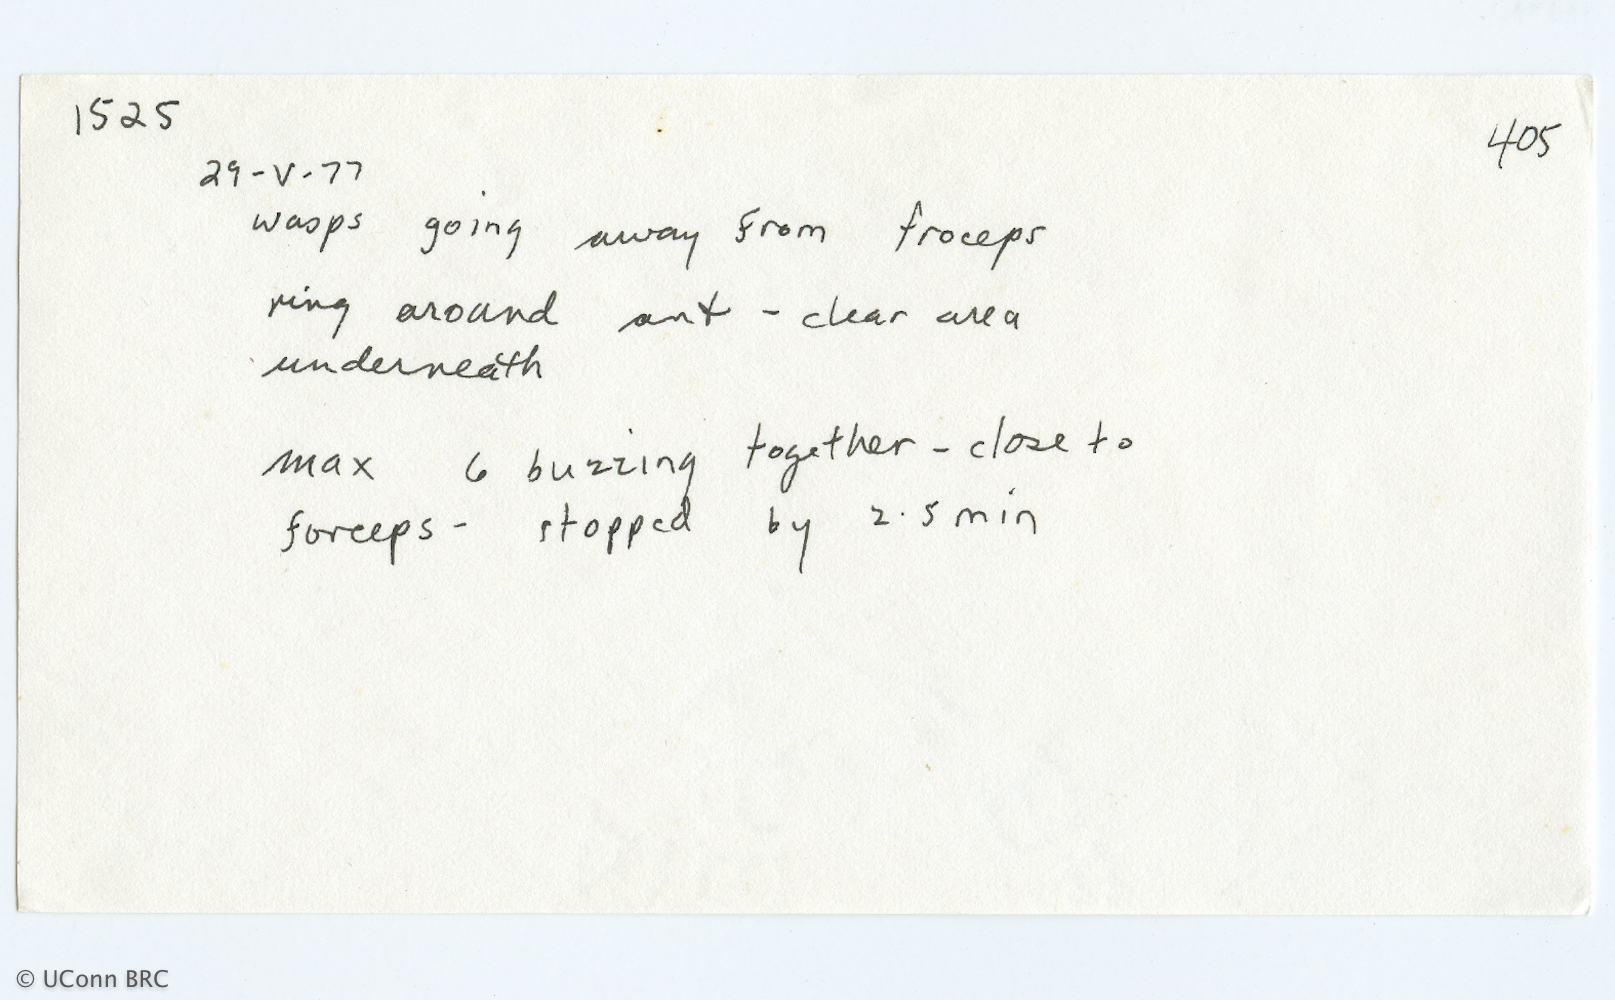 1525
405
29-V-77
wasps going away from froceps
ring around ant - clear area
underneath
max 6 buzzing together - close to
forceps - stopped by 2.5 min
© UConn BRC